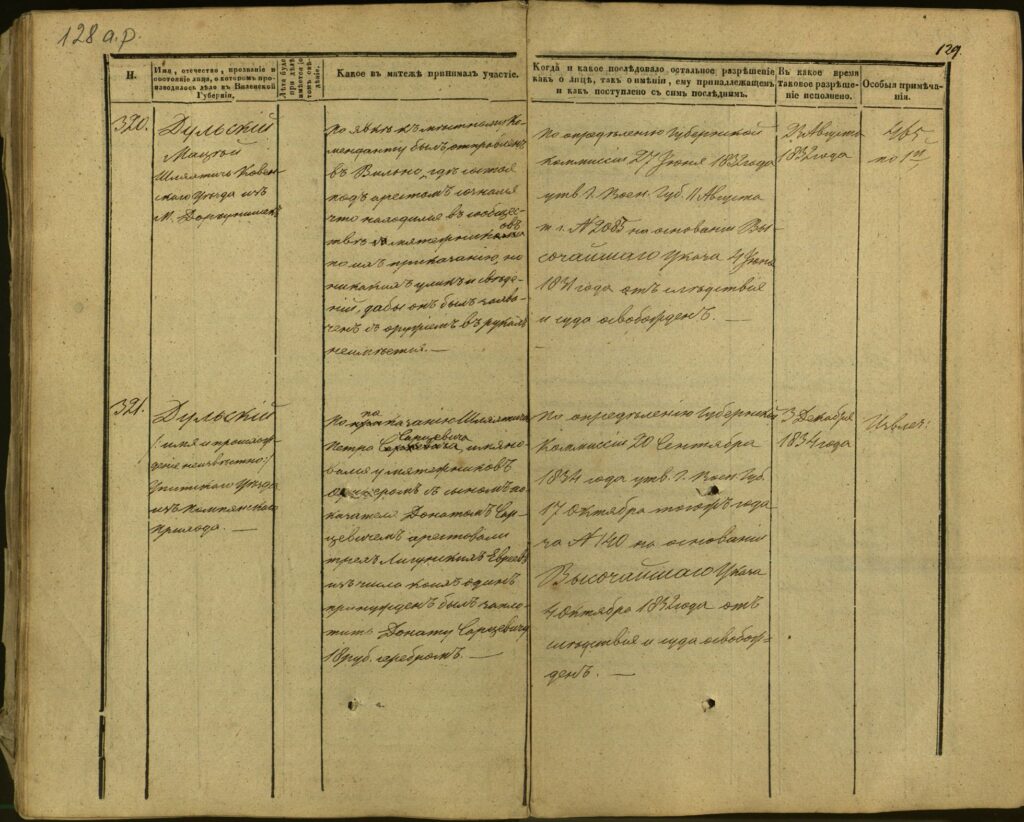 128 а.р.
129.
Н.
Имя, отечество, прозвание и
состояніе лица, о которомъ про-
изводилось дѣло въ Виленской
Губерніи.
Какое въ мятежѣ принималъ участіе.
Когда и какое послѣдовало остальное разрѣшеніе
какъ о лицѣ, такъ о имѣніи, ему принадлежащемъ
и какъ поступлено съ симъ послѣднимъ.
Въ какое время
таковое разрѣше-
ніе исполнено.
Особыя примѣча-
нія.
320.
Дульскій
Мацѣй
Шляхтичь Ковен-
скаго Уѣзда изъ
М.
По явкѣ къ мѣстному Ко-
менданту былъ отправленъ
въ Вильно, гдѣ состоя
подъ арестомъ сознался
что находился въ сообщес-
твѣ мятежниковъ
по ихъ приказанію, но
никакихъ уликъ и свѣдѣ-
ній, дабы онъ былъ
съ оружіемъ въ рукахъ
неимѣется. —
По опредѣленію Губернской
Коммисіи 27 Іюня 1832 года
утв. Г. Воен. Губ. 11 Августа
т. г. № 2085 на основаніи Вы-
сочайшаго Указа 4 Іюня
1831 года отъ слѣдствія
и суда освобожденъ. —
23 Августа
1832 года
321.
Дульскій
/: имя и происхож-
деніе неизвѣстно :/
Упитскаго Уѣзда
изъ
Прихода. —
По показанію Шляхтича
Петра Сарцевича
у мятежниковъ
съ сыномъ по-
казателя Донатомъ Сар-
цевичемъ арестовали
трехъ Евреевъ
изъ числа коихъ одинъ
принужденъ былъ запла-
тить Донату Сарцевичу
18 руб. серебромъ. —
По опредѣленію Губернской
Коммисіи 20 Сентября
1834 года утв. Г. Воен. Губ.
17 Октября тогожъ года
за № 140 на основаніи
Высочайшаго Указа
4 Октября 1832 года отъ
слѣдствія и суда освобож-
денъ. —
3 Декабря
1834 года